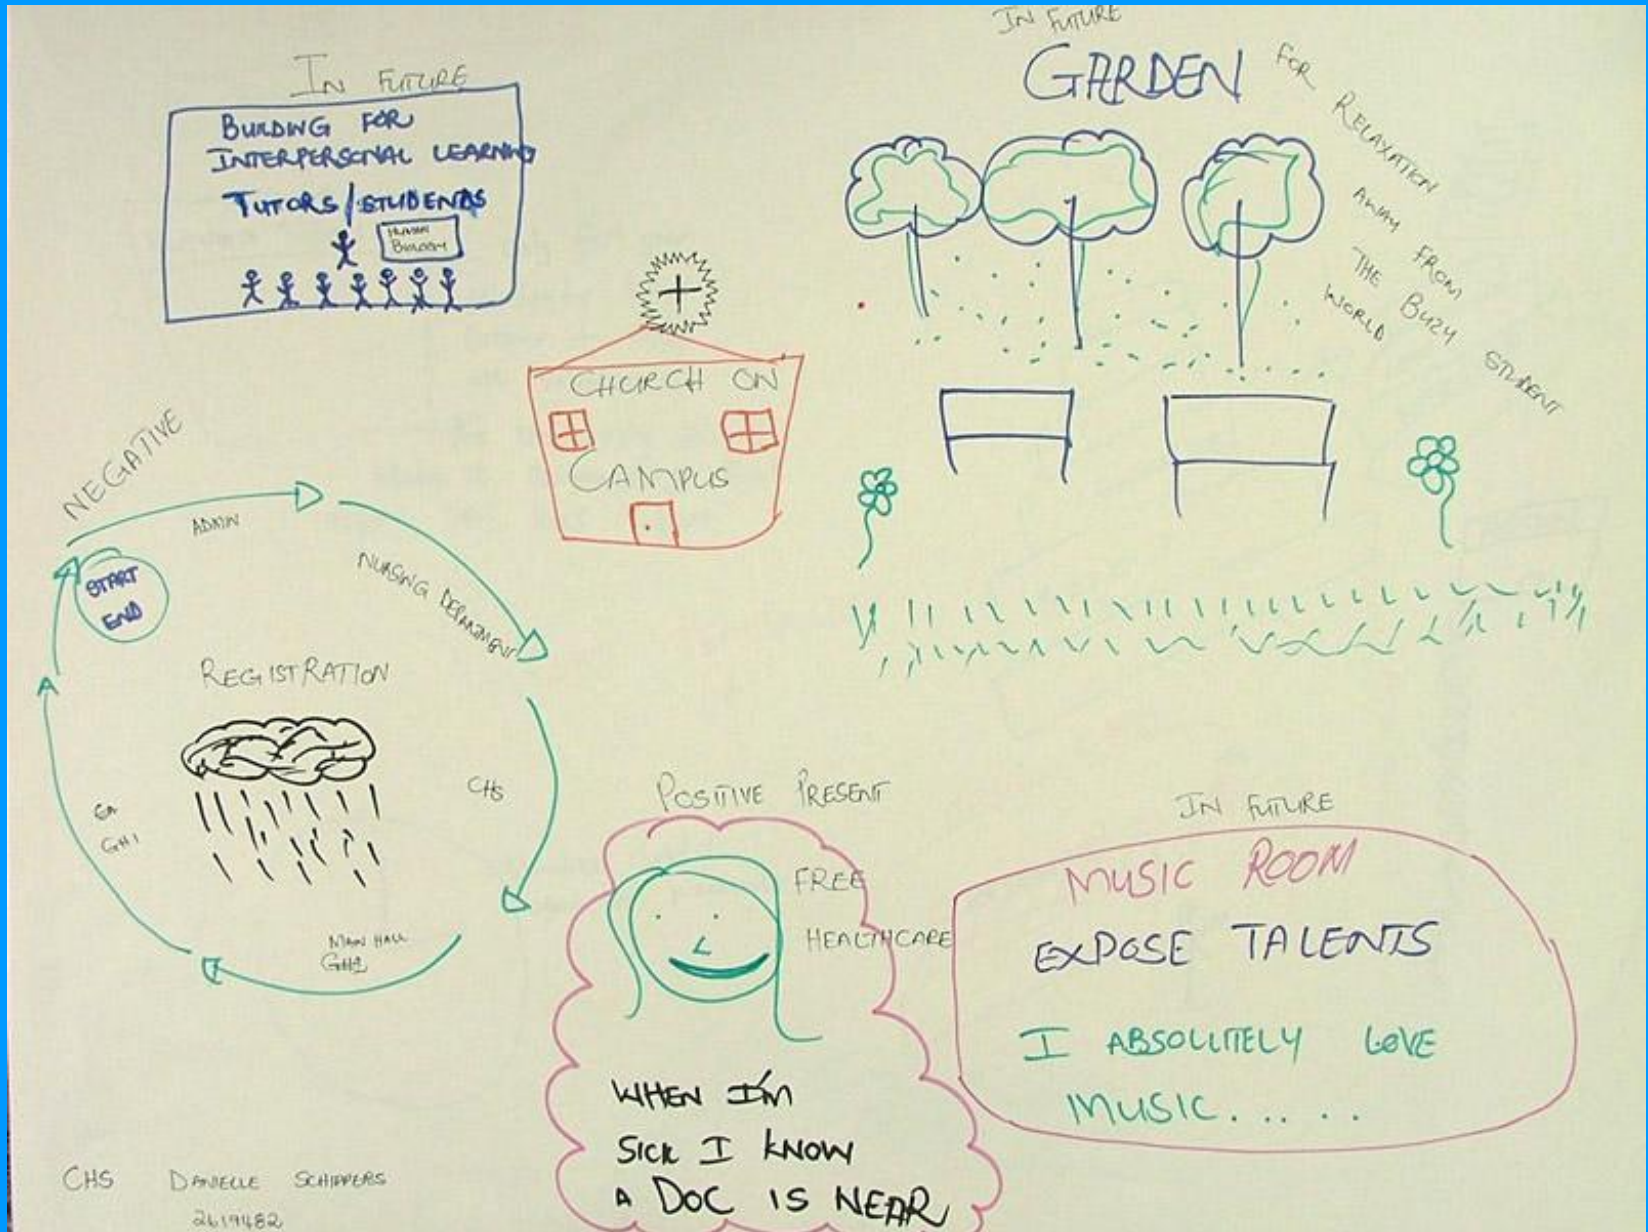 IN FUTURE
BUILDING FOR
INTERPERSONAL LEARNING
TUTORS/STUDENTS
HUMAN
BIOLOGY
IN FUTURE
GARDEN
FOR RELAXATION
AWAY FROM
THE BUZY STUDENT
WORLD
CHURCH ON
CAMPUS
NEGATIVE
START
END
ADMIN
NURSING DEPARTMENT
CHS
MAIN HALL
GH1
REGISTRATION
POSITIVE PRESENT
FREE
HEALTHCARE
WHEN I'M
SICK I KNOW
A DOC IS NEAR
IN FUTURE
MUSIC ROOM
EXPOSE TALENTS
I ABSOLUTELY LOVE
MUSIC.....
CHS DANIELLE SCHIPPERS
2619482